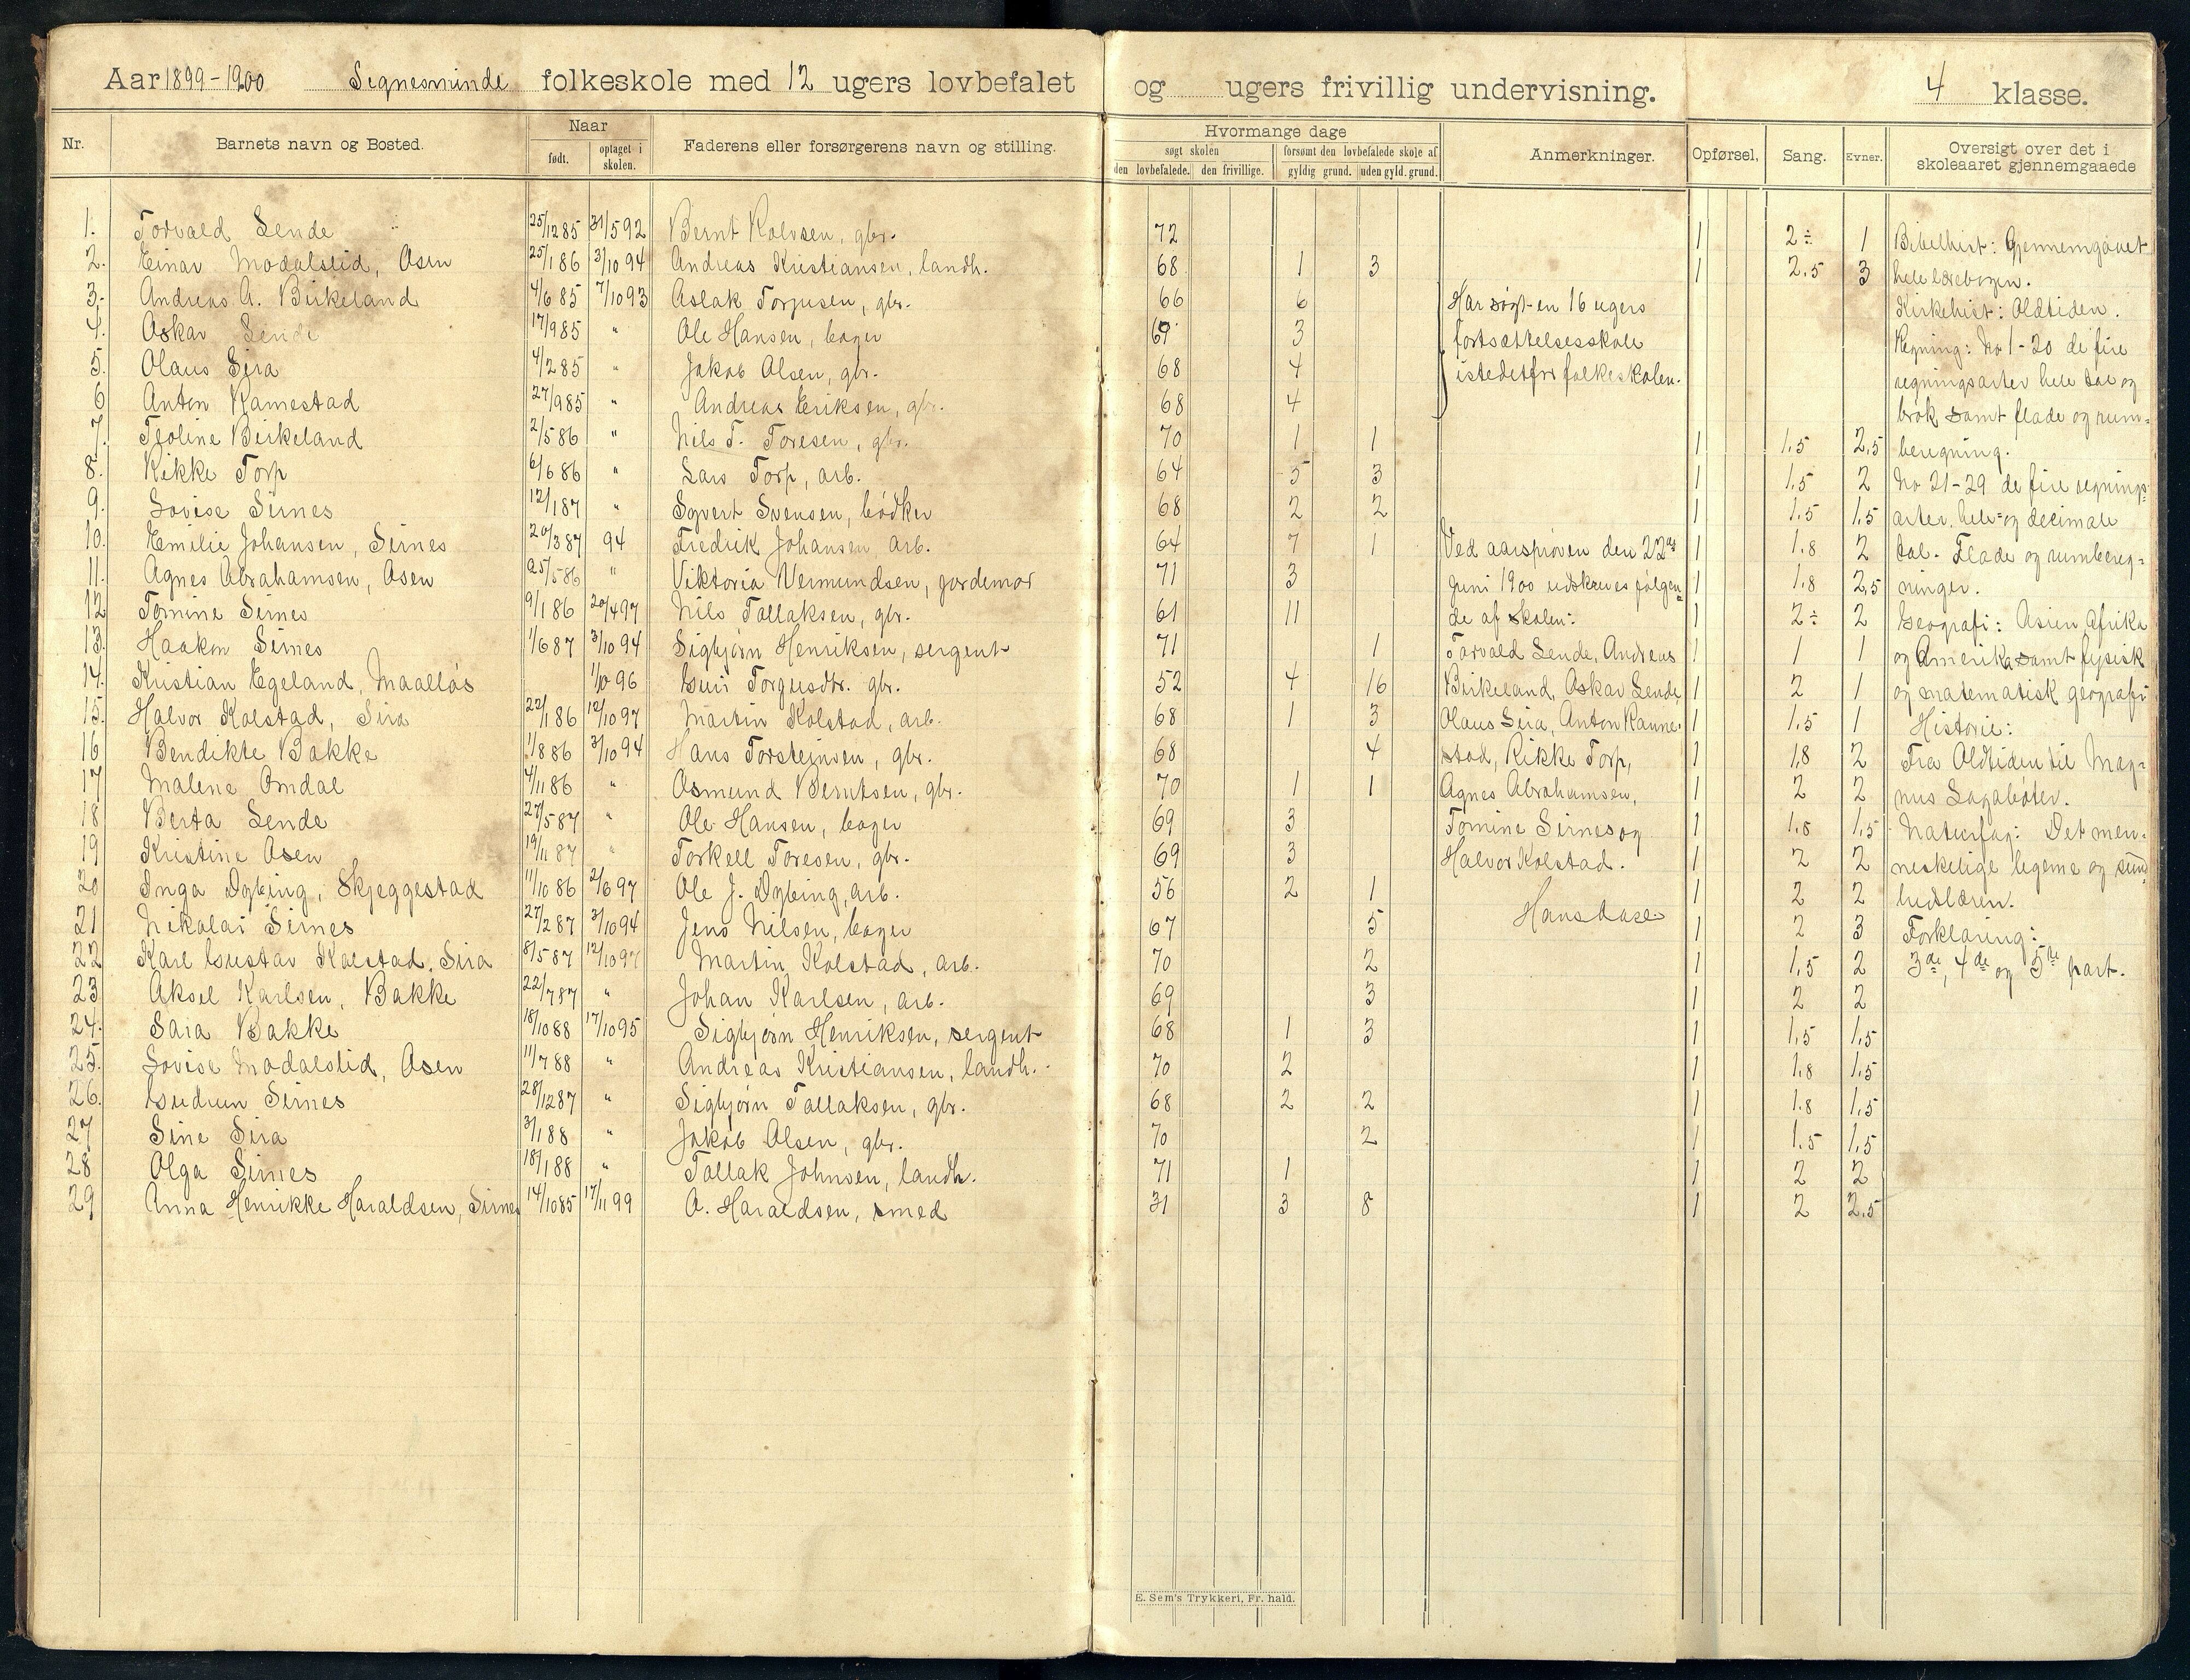 Aar 1899-1900 Segnesminde folkeskole med 12 ugers lovbefalet og ugers frivillig undervisning. 4 klasse.
Nr. Barnets navn og Bosted. Naar født. optaget i skolen. Faderens eller forsørgerens navn og stilling.
Hvormange dage
søgt skolen forsømt den lovbefalede skole af
den lovbefalede. den frivillige. gyldig grund. uden gyld. grund. Anmerkninger. Opførsel, Sang. Evner. Oversigt over det i skoleaaret gjennemgaaede
1. Torvald Sende 25/12 85 31/5 92 Bernt Rolvsen, gbr. 72 1 2÷ 1
2. Einar Modalslid, Osen 25/1 86 3/10 94 Andreas Kristiansen, landh. 68 1 3 1 2.5 3
3. Andreas A. Birkeland 4/6 85 7/10 93 Aslak Torjusen, gbr. 66 6
4. Askar Sende 17/9 85 " Ole Hansen, bager 69 3
5. Olaus Sira 4/2 85 " Jakob Olsen, gbr. 68 4
6 Anton Ramestad 27/9 85 " Andreas Eriksen, gbr. 68 4
7. Teoline Birkeland 2/5 86 " Nils T. Toresen, gbr. 70 1 1 1 1.5 2.5
8. Rikke Torp 6/6 86 " Lars Torp, arb. 64 5 3 1 1.5 2
9. Lovise Sirnes 12/1 87 " Syvert Svensen, bødker 68 2 2 1 1.5 1.5
10. Emilie Johansen, Sirnes 20/3 87 94 Fredrik Johansen, arb. 64 7 1 1 1.8 2
11. Agnes Abrahamsen, Osen 25/5 86 " Viktoria Vermundsen, jordemor 71 3 1 1.8 2.5
12 Tomine Sirnes 9/1 86 20/4 97 Nils Tallaksen, gbr. 61 11 1 2÷ 2
13. Haakon Sirnes 1/6 87 3/10 94 Sigbjørn Henriksen, sergent 71 1 1 1 1
14. Kristian Egeland, Maalløs 1/10 96 Guri Torgusdtr. gbr. 52 4 16 1 2 1
15. Halvor Kolstad, Sira 22/1 86 12/10 97 Martin Kolstad, arb. 68 1 3 1 1.5 1
16 Bendikte Bakke 1/8 86 3/10 94 Hans Torsteinsen, gbr. 68 4 1 1.8 2
17 Malene Omdal 4/11 86 " Osmund Berntsen, gbr. 70 1 1 1 2 2
18 Berta Sende 27/5 87 " Ole Hansen, bager 69 3 1 1.8 1.5
19 Kristine Osen 19/11 87 " Torkell Toresen, gbr. 69 3 1 2 2
20 Inga Dybing, Skjeggestad 11/10 86 2/6 97 Ole J. Dybing, arb. 56 2 1 1 2 2
21 Nikolai Sirnes 27/2 87 3/10 94 Jens Nilsen, bager 67 5 1 2 3
22 Karl Gustav Kolstad, Sira 8/5 87 12/10 97 Martin Kolstad, arb. 70 2 1 1.5 2
23 Aksel Karlsen, Bakke 22/7 87 " Johan Karlsen, arb. 69 3 1 2 2
24. Sara Bakke 18/10 88 17/10 95 Sigbjørn Henriksen, sergent 68 1 3 1 1.5 1.5
25. Lovise Modalslid, Osen 11/7 88 " Andreas Kristiansen, landh. 70 2 1 1.8 1.5
26. Gudrun Sirnes 28/12 87 " Sigbjørn Tallaksen, gbr. 68 2 2 1 1.8 1.5
27 Sine Sira 3/1 88 " Jakob Olsen, gbr. 70 2 1 1.5 1.5
28 Olga Sirnes 18/1 88 " Tallak Johnsen, landh. 71 1 1 2 2
29 Anna Henrikke Haraldsen, Sirnes 14/10 85 17/11 99 A. Haraldsen, smed 31 3 8 1 2 2.5
Har søgt en 16 ugers
fortsættelsesskole
istedetfor folkeskolen.
Ved aarsprøven den 22de
juni 1900 udskreves følgen=
de af skolen:
Torvald Sende, Andreas
Birkeland, Askar Sende,
Olaus Sira, Anton Ramme-
stad, Rikke Torp,
Agnes Abrahamsen,
Tomine Sirnes og
Halvor Kolstad.
Hans Aase
Bibelhist: Gjennemgaaet
hele lærebogen.
Kirkehist: Oldtiden.
Regning: No 1-20 de fire
regningsarter hele tal og
brøk samt flade og rum=
beregning.
No 21-29 de fire regnings=
arter, hele og decimale
tal. Flade og rumbereg=
ninger.
Geografi: Asien, Afrika
og Amerika samt fysisk
og matematisk geografi
Historie:
Fra Oldtiden til Mag=
nus Lagabøter.
Naturfag: Det men=
neskelige legeme og sund=
hedslæren.
Forklaring:
3de, 4de og 5te part.
E. Sem's Trykkeri, Fr. hald.